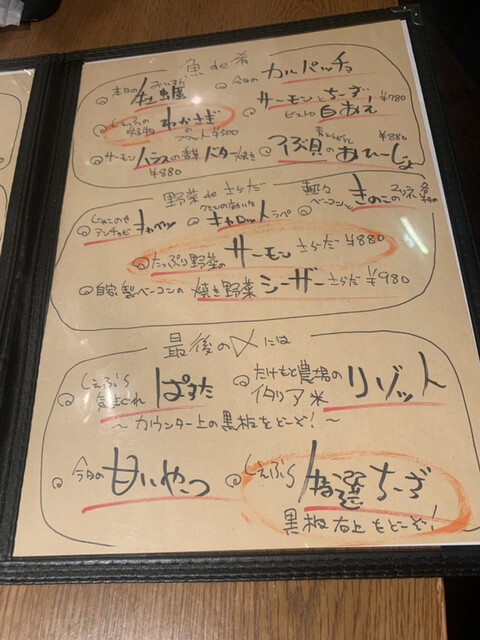 魚 de 肴
本日の 牡蠣
今日の カルパッチョ
わかさぎ
のフリット ¥500
サーモンとちーず, ¥780
ビストロ 白あえ
サーモンハラスの香草バター焼き
¥880
つぶ貝のあひーじょ
¥880
野菜 de さらだ
じゃこのせ
アンチョビ キャベツ
キャロットラペ
ベーコンと きのこの
たっぷり野菜の サーモン さらだ ¥880
自家製ベーコンの 焼き野菜 シーザー さらだ ¥980
最後の〆には
しぇふら
気まぐれ ぱすた
たけもと農場の
イタリア米 リゾット
～カウンター上の黒板をどーぞ！～
今日の 甘いやつ
しぇふ's 特選ちーず
黒板右上をどーぞ！